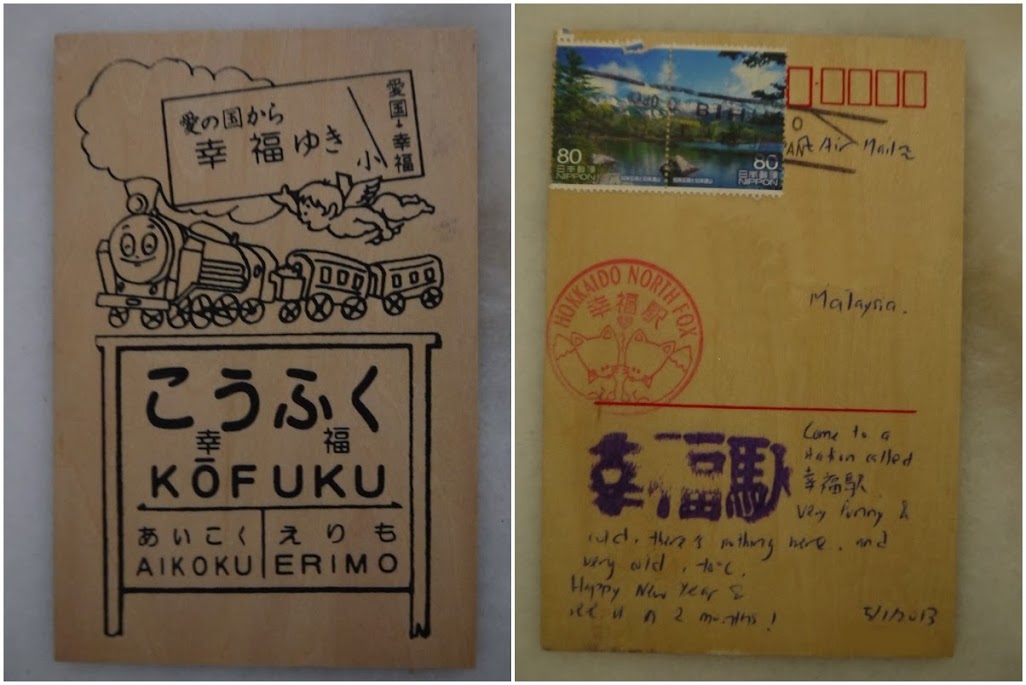 愛の国から
幸福ゆき
小
愛国→幸福
こうふく
幸福
KŌFUKU
あいこく
AIKOKU
えりも
ERIMO
80
日本郵便
NIPPON
80
日本郵便
NIPPON
Air Mail
Malaysia.
HOKKAIDO NORTH FOX
幸福駅
幸福駅
Come to a
station called
幸福駅
very funny &
cold, there is nothing here, and
very cold,
Happy New Year &
see u in 2 months!
5/1/2013